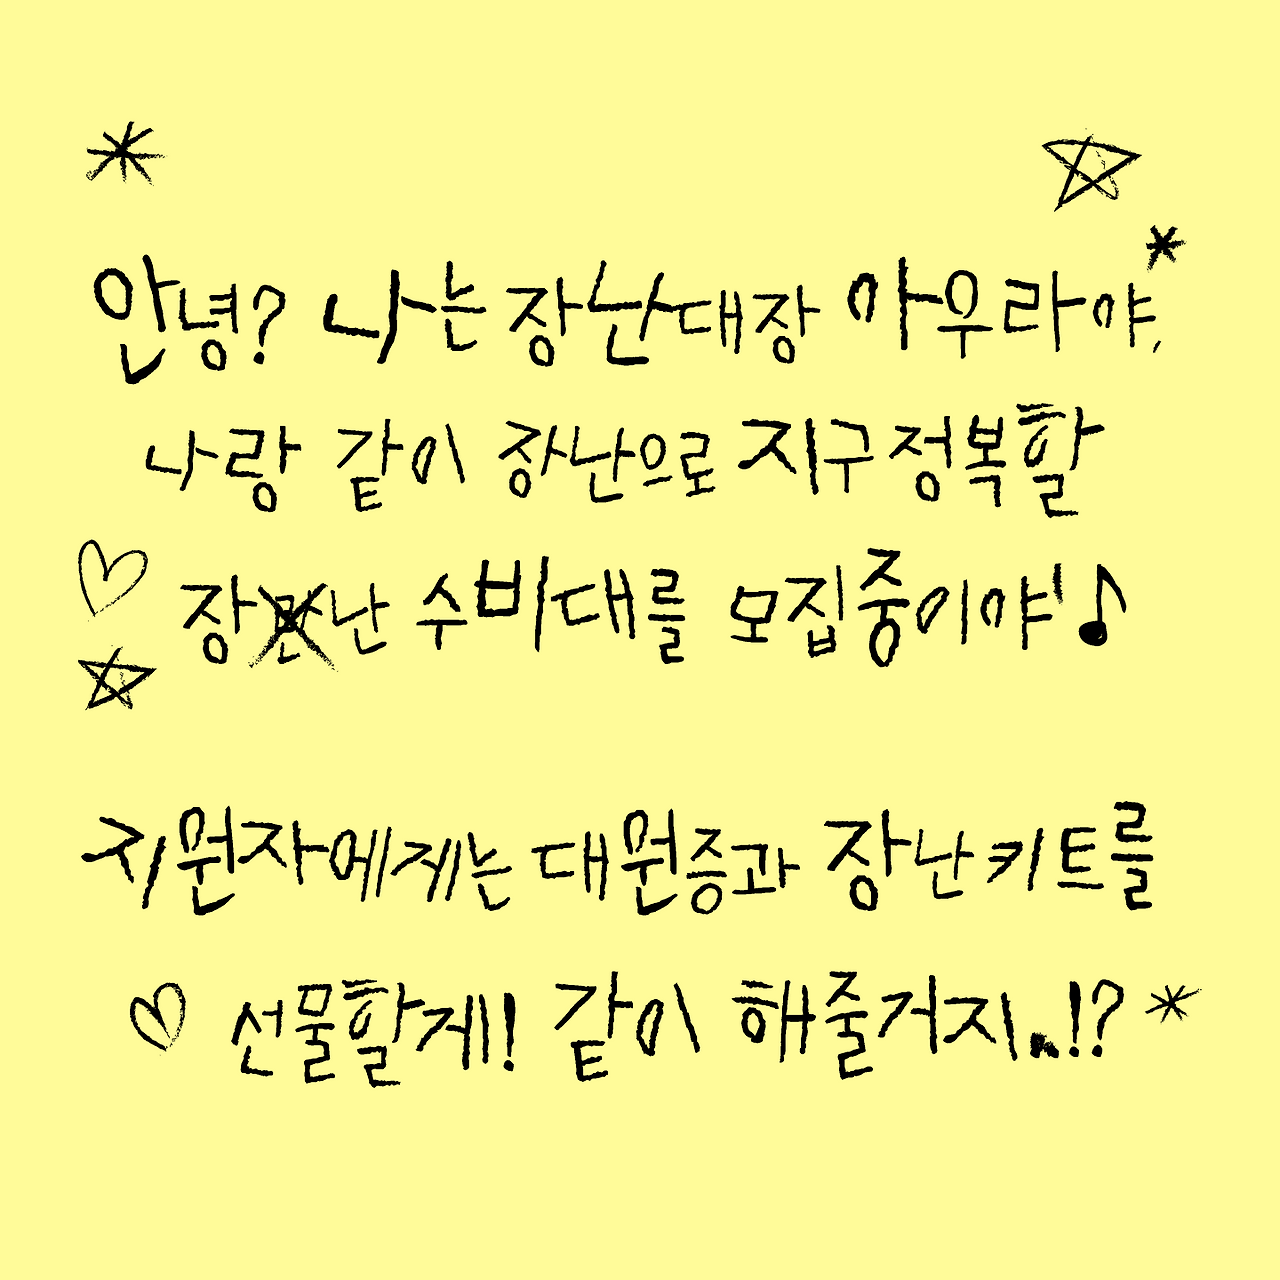 안녕? 나는 장난대장 아우라야,
나랑 같이 장난으로 지구정복할
장난 수비대를 모집중이야!♪
지원자에게는 대원증과 장난키트를
선물할게! 같이 해줄거지..!?